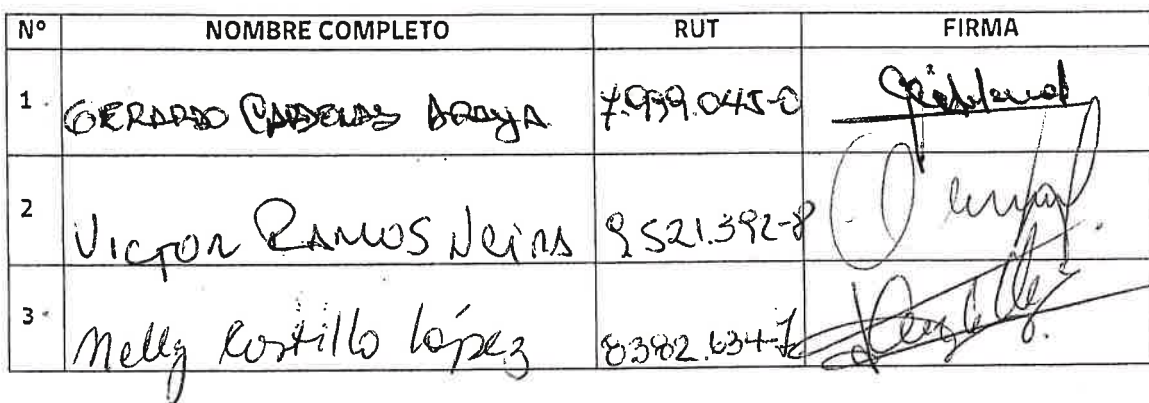 Nº NOMBRE COMPLETO RUT FIRMA
1 GERARDO CARDENAS ARAYA 7.999.045-0
2 VICTOR RAMOS NEIRA 9521.392-8
3 Nelly Costillo López 8382.634-7